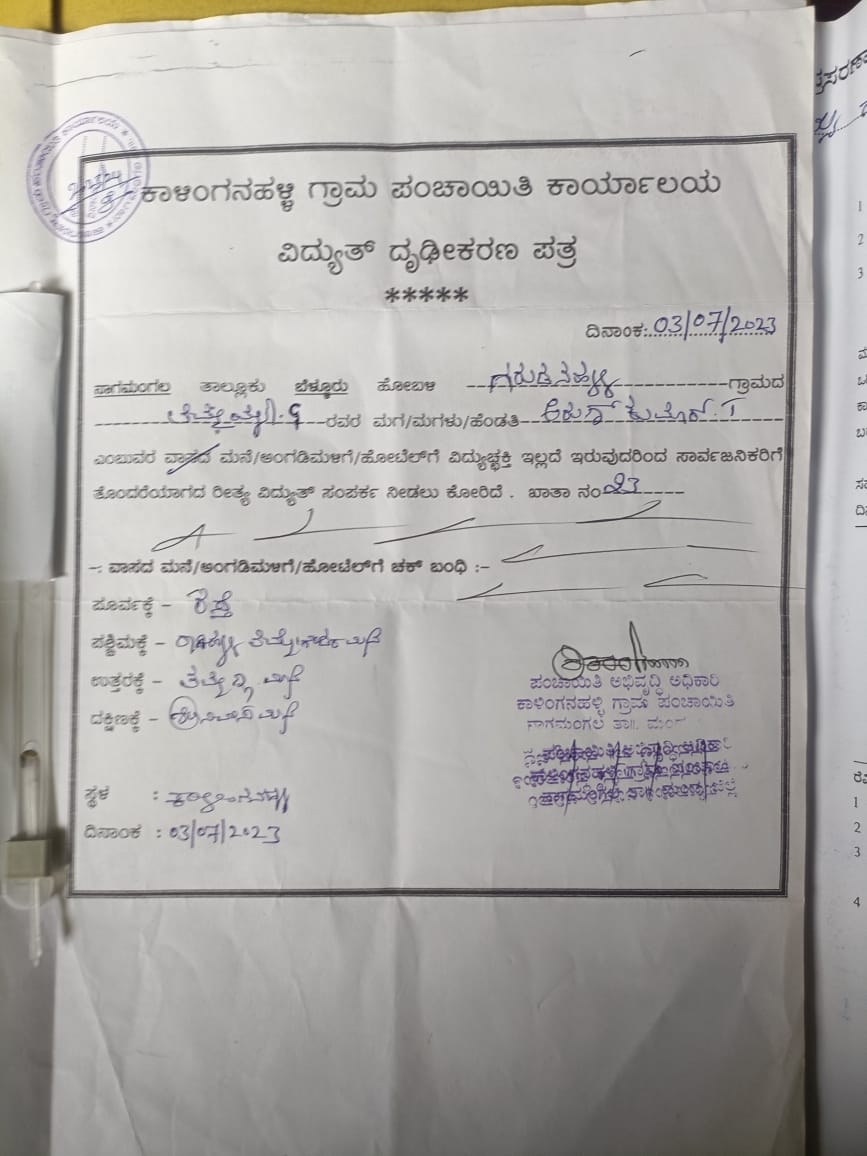 ಕಾಳಿಂಗನಹಳ್ಳಿ ಗ್ರಾಮ ಪಂಚಾಯಿತಿ ಕಾರ್ಯಾಲಯ
ವಿದ್ಯುತ್ ದೃಢೀಕರಣ ಪತ್ರ
*****
ದಿನಾಂಕ:03/07/2023
ನಾಗಮಂಗಲ ತಾಲ್ಲೂಕು ಬೆಳ್ಳೂರು ಹೋಬಳಿ ಗರುಡನಹಳ್ಳಿ ಗ್ರಾಮದ
ರವರ ಮಗ/ಮಗಳು/ಹೆಂಡತಿ ಅರುಣ್ ಕುಮಾರ್.T
ಎಂಬುವರ ವಾಸದ ಮನೆ/ಅಂಗಡಿಮಳಿಗೆ/ಹೋಟೆಲ್‌ಗೆ ವಿದ್ಯುಚ್ಛಕ್ತಿ ಇಲ್ಲದೆ ಇರುವುದರಿಂದ ಸಾರ್ವಜನಿಕರಿಗೆ
ತೊಂದರೆಯಾಗದ ರೀತ್ಯ ವಿದ್ಯುತ್ ಸಂಪರ್ಕ ನೀಡಲು ಕೋರಿದೆ . ಖಾತಾ ನಂ 23
-: ವಾಸದ ಮನೆ/ಅಂಗಡಿಮಳಿಗೆ/ಹೋಟೆಲ್‌ಗೆ ಚಕ್ ಬಂಧಿ :-
ಪೂರ್ವಕ್ಕೆ – ರಸ್ತೆ
ಪಶ್ಚಿಮಕ್ಕೆ – ಮನೆ
ಉತ್ತರಕ್ಕೆ – ಮನೆ
ದಕ್ಷಿಣಕ್ಕೆ – ಶ್ರೀನಿವಾಸ ಮನೆ
ಪಂಚಾಯಿತಿ ಅಭಿವೃದ್ಧಿ ಅಧಿಕಾರಿ
ಕಾಳಿಂಗನಹಳ್ಳಿ ಗ್ರಾಮ ಪಂಚಾಯಿತಿ
ನಾಗಮಂಗಲ ತಾ||. ಮಂಡ್ಯ
ಸ್ಥಳ : ಕಾಳಿಂಗನಹಳ್ಳಿ
ದಿನಾಂಕ : 03/07/2023